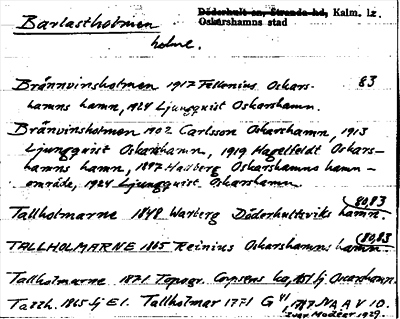 Barlastholmen
Döderhult sn, Stranda hd, Kalm. lz.
Oskarshamns stad
holme.
Brännvinsholmen 1917 Fellenius Oskars- 83
hamns hamn, 1924 Ljungquist Oskarshamn.
Bränvinsholmen 1902 Carlsson Oskarshamn, 1913
Ljungqvist Oskarshamn, 1919 Hagelfeldt Oskars-
hamns hamn, 1897 Hadberg Oskarshamns hamn-
område, 1924 Ljungquist Oskarshamn
80,83
Tallholmarne 1848 Warberg Döderhultsviks hamn.
80,83
TALLHOLMARNE 1865 Reinius Oskarshamns hamn.
Tallholmarne 1871 Topogr. Corpsens ka, bl Oscarshamn.
Tallh. 1865 Ej E1. Tallholmar 1771 G VI, NA A V 10.
Ivar Modéer 1929.